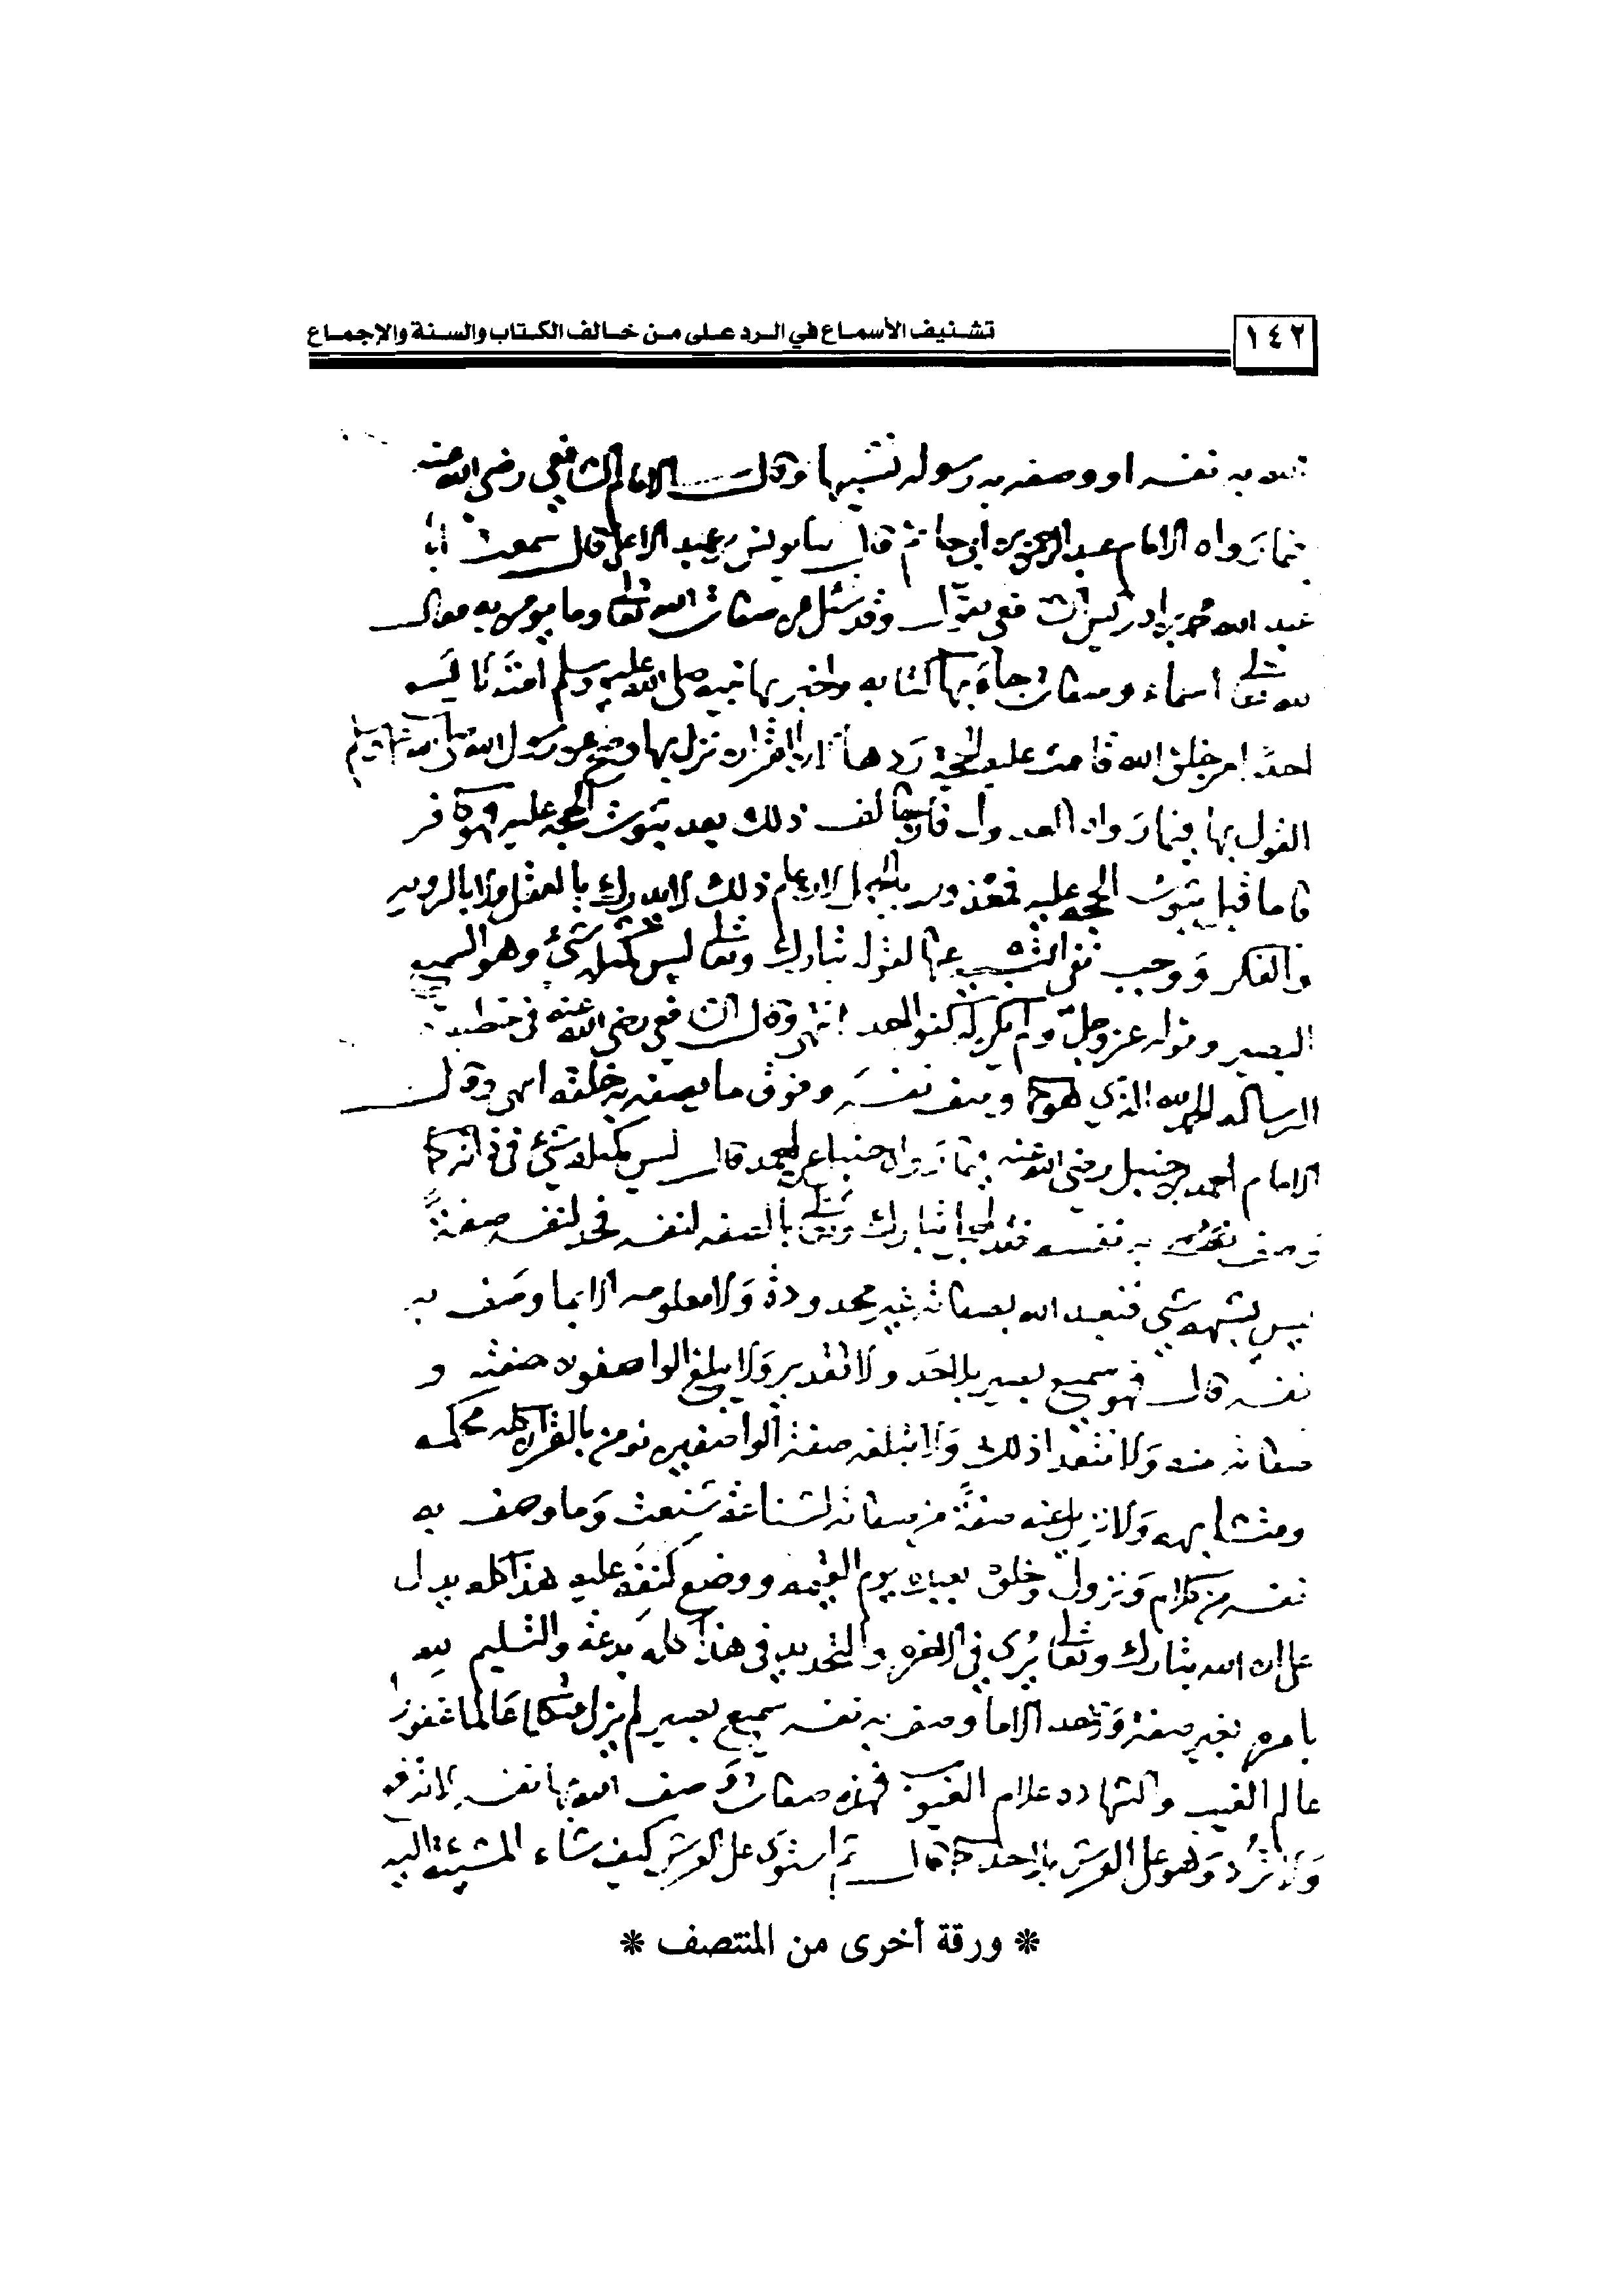 تشنيف الأسماع في الرد على من خالف الكتاب والسنة والإجماع
١٤٢
الله به نفسه او وصفه به رسوله تشبيها وقال الامام الشافعي رضي الله عنه
فيما رواه الامام عبد الرحمن بن ابي حاتم قال ثنا يونس بن عبد الاعلى قال سمعت ابا
عبد الله محمد بن ادريس الشافعي يقول وقد سئل عن صفات الله تعالى وما يومن به فقال
لله تعالى اسماء وصفات جاء بها كتابه واخبر بها نبيه صلى الله عليه وسلم امته لا يسع
احدا من خلق الله قامت عليه الحجة ردها لان القران نزل بها وصح عن رسول الله صلى الله عليه وسلم
القول بها فيما رواه العدول فان خالف ذلك بعد ثبوت الحجة عليه فهو كافر
فاما قبل ثبوت الحجة عليه فمعذور بالجهل لان علم ذلك لا يدرك بالعقل ولا بالروية
والفكر ووجب نفي التشبيه عنها لقوله تبارك وتعالى ليس كمثله شيء وهو السميع
البصير وقوله عز وجل ولم يكن له كفوا احد انتهى وقال الشافعي رضي الله عنه في خطبة
الرسالة الحمد لله الذي هو كما وصف نفسه وفوق ما يصفه به خلقه انتهى وقال
الامام احمد بن حنبل رضي الله عنه فيما رواه حنبل عن احمد قال ليس كمثله شيء في ذاته كما
وصف به نفسه فقد اجمل تبارك وتعالى بالصفه لنفسه فحد لنفسه صفةً
ليس يشبهه شي فنعبد الله بصفاته غير محدودة ولا معلومه الا بما وصف به
نفسه قال فهو سميع بصير بلا حد ولا تقدير ولا يبلغ الواصفون صفته و
صفاته منه ولا نتعدا ذلك ولا تبلغه صفة الواصفين نومن بالقران كله محكمه
ومتشابهه ولا نزيل عنه صفةً من صفاته لشناعة شنعت وما وصف به
نفسه من كلام ونزول وخلوه بعبده يوم القيمه ووضع كنفه عليه هذا كله يدل
على ان الله تبارك وتعالى يُرى في الاخرة والتحديد في هذا كله بدعة والتسليم لله
بامره بغير صفة وحد الا ما وصف به نفسه سميع بصير لم يزل متكلما عالما غفورا
عالم الغيب والشهادة علام الغيوب فهذه صفات وصف الله بها نفسه لا تدفع
ولا ترد وهو على العرش بلا حد كما قال ثم استوى على العرش كيف شاء المشيئة اليه
* ورقة أخرى من المنتصف *